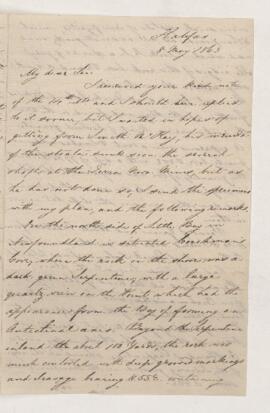 Halifax
8 May 1863
My dear Sir.
I received your kind note
of the 14th and I should have replied
to it sooner, but I waited in hopes of
getting from Smith McKay, his record
of the strata sunk
shafts at the Terra Nova Mines, but as
he has not done so, I send the specimens
with my plan, and the following remarks.
On the north side of Little Bay in
Newfoundland is situated
Cove, where the rock on the shore was a
dark green Serpentine, with a large
quartz vein on the Point which had the
appearance from the Bay of forming an
Anticlinal axis. Beyond the Serpentine
inland about 100 Yards, the rock was
much contorted with deep grooved markings
and cleavage bearing N 55 E. containing